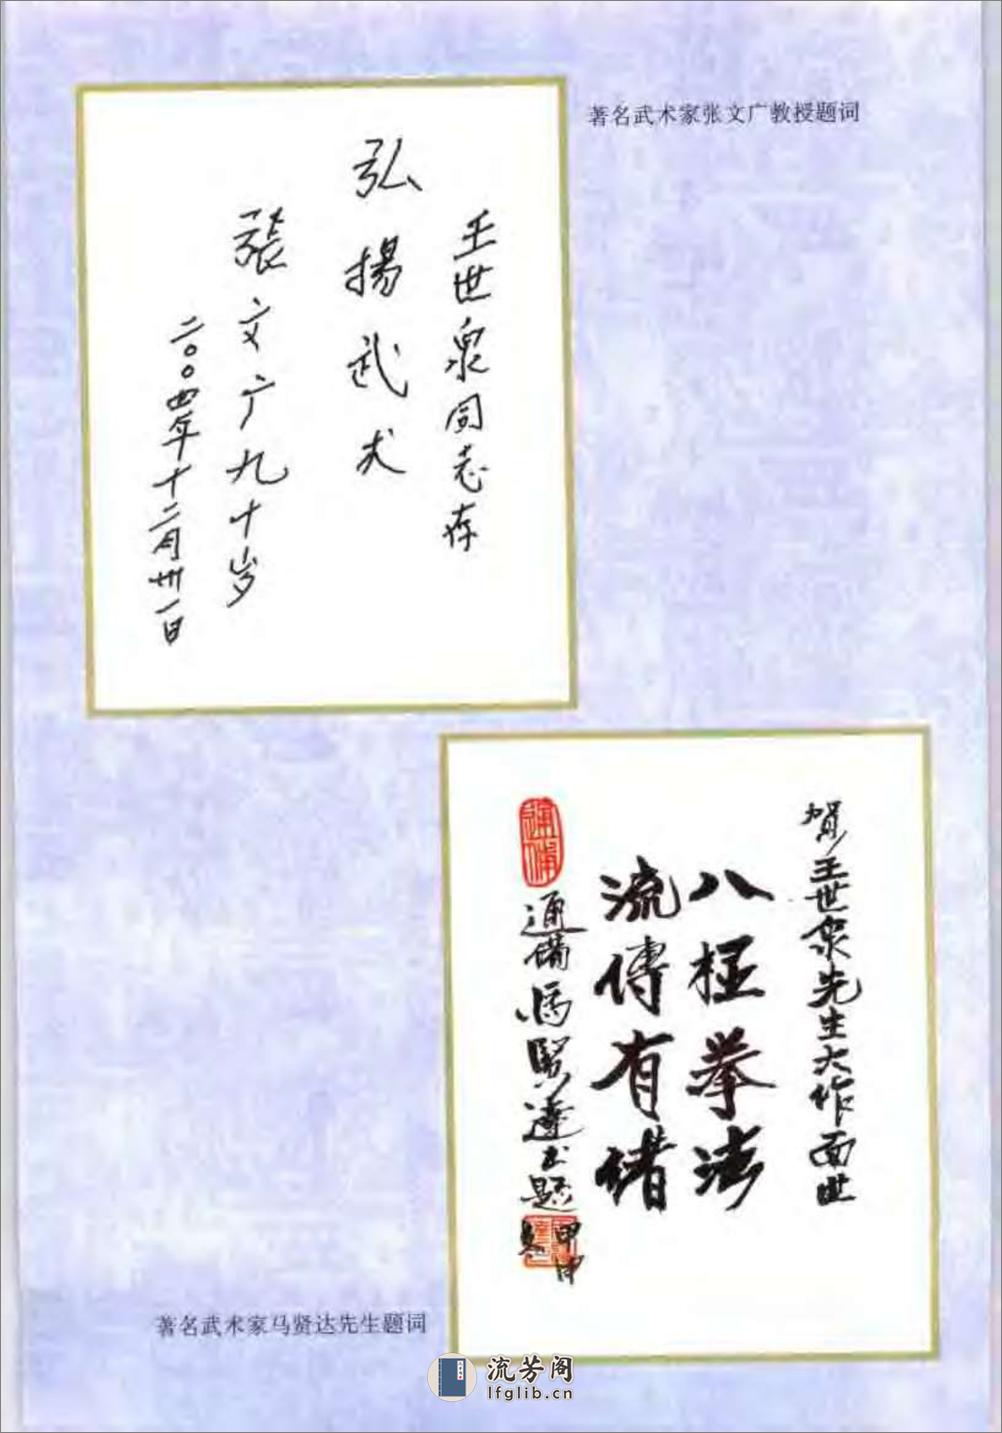 著名武术家张文广教授题词
王世泉同志存
弘揚武术
張文广九十岁
二〇〇四年十二月卅一日
贺王世泉先生大作面世
八极拳法
流傳有绪
通備馬贤達书题
甲申
著名武术家马贤达先生题词
流芳阁
lfglib.cn